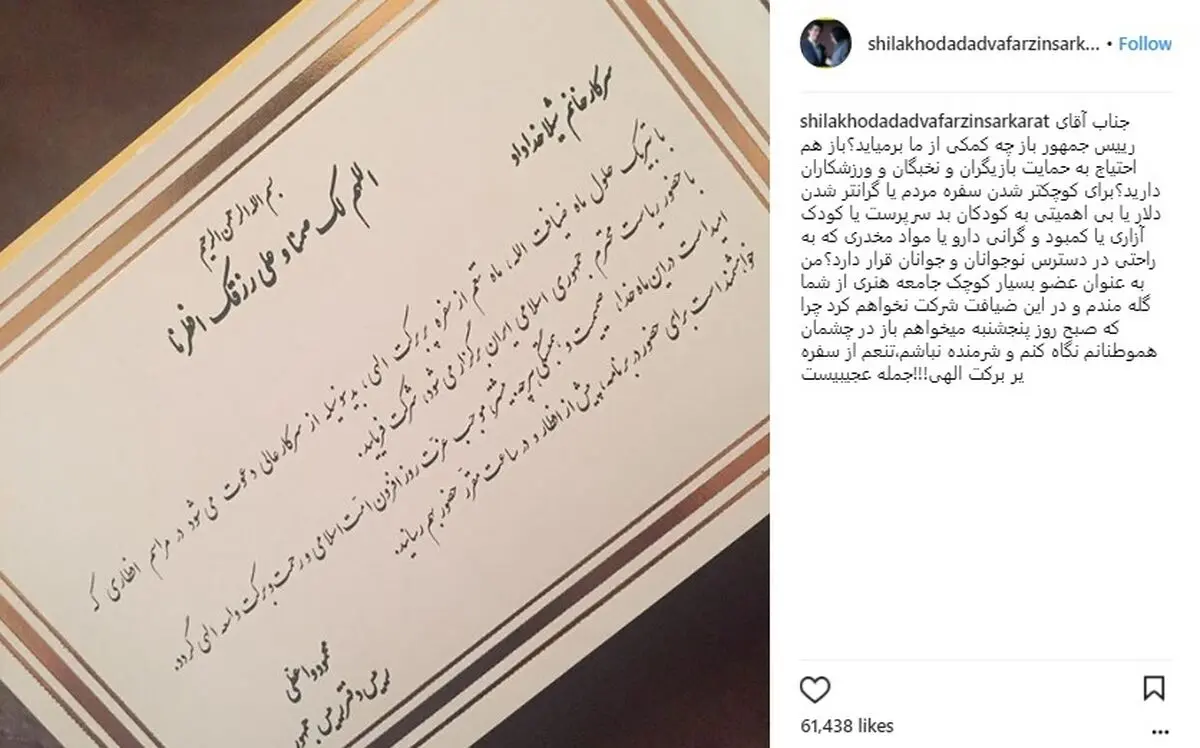 بسم الله الرحمن الرحیم
اللهم لک صمنا و علی رزقک افطرنا
سرکار خانم شیلا خداداد
با تبریک حلول ماه ضیافت الله، ماه تنعم از سفره پر برکت الهی، بدینوسیله از سرکار عالی دعوت می شود در مراسم افطاری که
با حضور ریاست محترم جمهوری اسلامی ایران برگزاری شود، شرکت فرمایید.
امید است در این ماه خدا، صمیمیت و همبستگی هر چه بیشتر، موجب عزت روز افزون امت اسلامی و رحمت و برکت واسعه الهی گردد.
خواهشمند است برای حضور در برنامه، پیش از افطار و در ساعت مقرر حضور بهم رسانید.
محمود واعظی
رییس دفتر رییس جمهور
shilakhodadadvafarzinsark... • Follow
shilakhodadadvafarzinsarkarat جناب آقای
رییس جمهور باز چه کمکی از ما برمیاید؟باز هم
احتیاج به حمایت بازیگران و نخبگان و ورزشکاران
دارید؟برای کوچکتر شدن سفره مردم یا گرانتر شدن
دلار یا بی اهمیتی به کودکان بد سرپرست یا کودک
آزاری یا کمبود و گرانی دارو یا مواد مخدری که به
راحتی در دسترس نوجوانان و جوانان قرار دارد؟من
به عنوان عضو بسیار کوچک جامعه هنری از شما
گله مندم و در این ضیافت شرکت نخواهم کرد چرا
که صبح روز پنجشنبه میخواهم باز در چشمان
هموطنانم نگاه کنم و شرمنده نباشم،تنعم از سفره
یر برکت الهی!!!جمله عجیبیست
61,438 likes